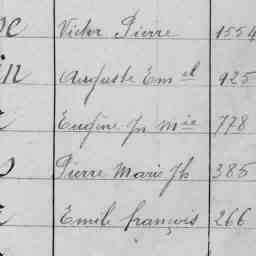 Victor Pierre 1554
in Auguste Em el 925
Eugène Jn Mie 778
Pierre Marie Jh 385
Emile françois 266